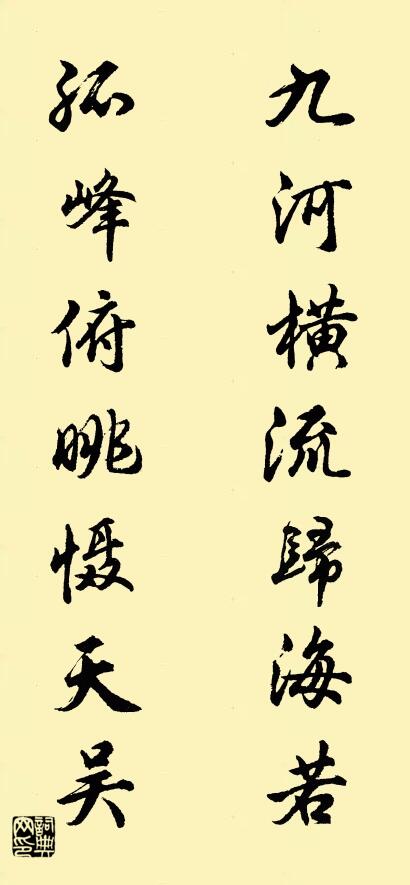 九河横流歸海若
孤峰俯眺慑天吴
詞典网印